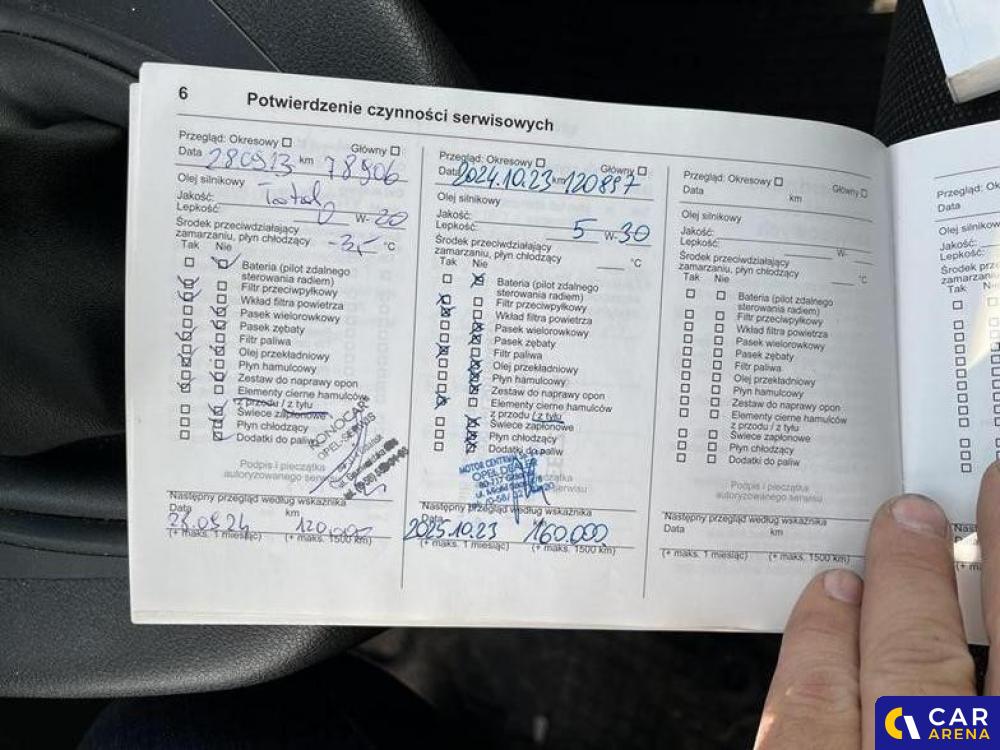 6
Potwierdzenie czynności serwisowych
Przegląd: Okresowy
Główny
Data 280913 km 78906
Olej silnikowy Total
Jakość:
Lepkość: W- 20
Środek przeciwdziałający
zamarzaniu, płyn chłodzący -35 °C
Tak Nie
Bateria (pilot zdalnego
sterowania radiem)
Filtr przeciwpyłkowy
Wkład filtra powietrza
Pasek wielorowkowy
Pasek zębaty
Filtr paliwa
Olej przekładniowy
Płyn hamulcowy
Zestaw do naprawy opon
Elementy cierne hamulców
z przodu / z tyłu
Świece zapłonowe
Płyn chłodzący
Dodatki do paliw
KONOCAR
OPEL-SERWIS
Podpis i pieczątka
autoryzowanego serwisu
Następny przegląd według wskaźnika
Data km
28.09.24 120.000
(+ maks. 1 miesiąc) (+ maks. 1500 km)
Przegląd: Okresowy
Główny
Data 2024.10.23 km 120897
Olej silnikowy
Jakość:
Lepkość: 5 W- 30
Środek przeciwdziałający
zamarzaniu, płyn chłodzący °C
Tak Nie
Bateria (pilot zdalnego
sterowania radiem)
Filtr przeciwpyłkowy
Wkład filtra powietrza
Pasek wielorowkowy
Pasek zębaty
Filtr paliwa
Olej przekładniowy
Płyn hamulcowy
Zestaw do naprawy opon
Elementy cierne hamulców
z przodu / z tyłu
Świece zapłonowe
Płyn chłodzący
Dodatki do paliw
MOTOR CENTRUM
OPEL DEALER
Następny przegląd według wskaźnika
Data
2025.10.23 160.000
(+ maks. 1 miesiąc) (+ maks. 1500 km)
Przegląd: Okresowy
Główny
Data km
Olej silnikowy
Jakość:
Lepkość: W-
Środek przeciwdziałający
zamarzaniu, płyn chłodzący °C
Tak Nie
Bateria (pilot zdalnego
sterowania radiem)
Filtr przeciwpyłkowy
Wkład filtra powietrza
Pasek wielorowkowy
Pasek zębaty
Filtr paliwa
Olej przekładniowy
Płyn hamulcowy
Zestaw do naprawy opon
Elementy cierne hamulców
z przodu / z tyłu
Świece zapłonowe
Płyn chłodzący
Dodatki do paliw
Podpis i pieczątka
autoryzowanego serwisu
Następny przegląd według wskaźnika
Data km
(+ maks. 1 miesiąc) (+ maks. 1500 km)
Przegląd:
Data
Olej silnikowy
Jakość:
Lepkość:
Środek
Tak Nie
CAR
ARENA